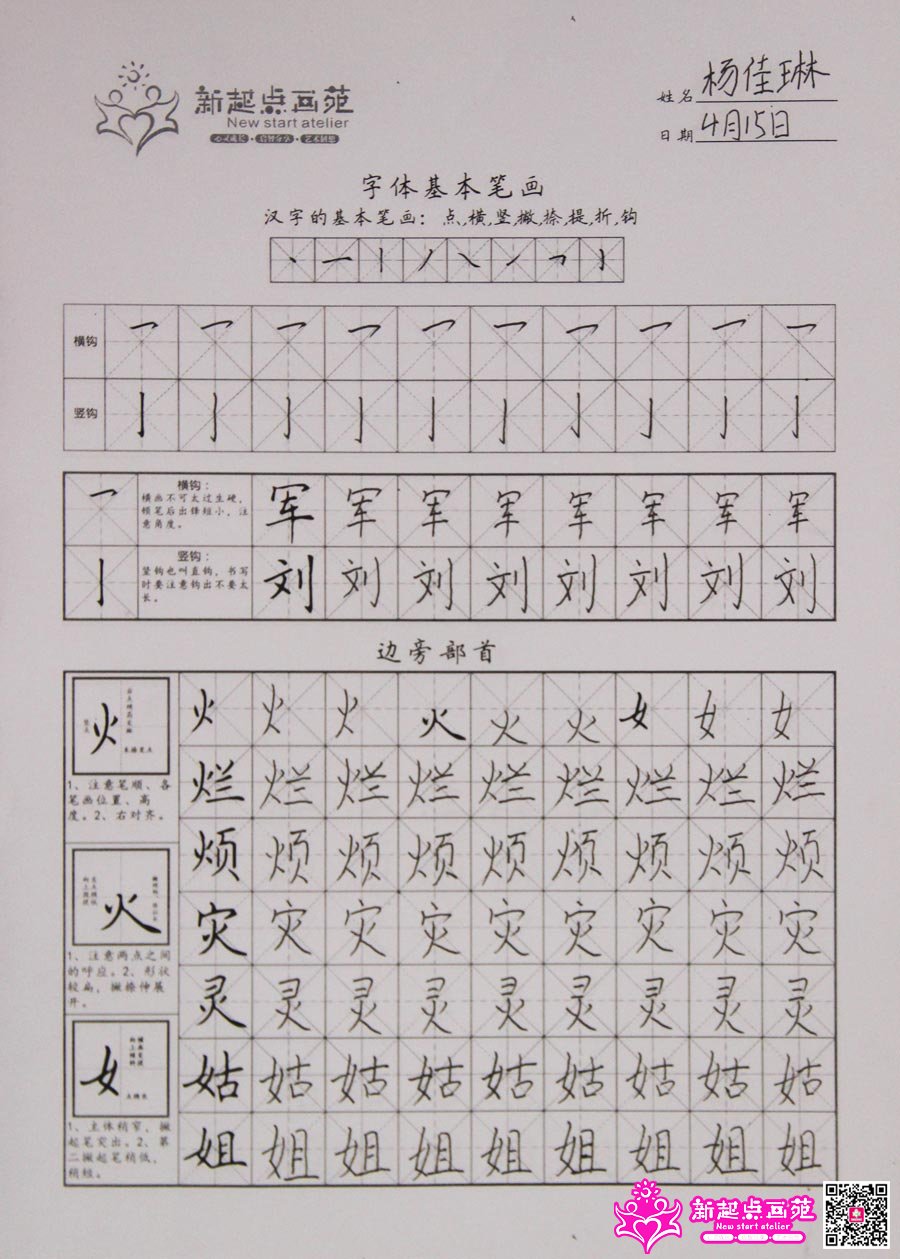 新起点画苑
New start atelier
姓名 杨佳琳
日期 4月15日
字体基本笔画
汉字的基本笔画：点,横,竖,撇,捺,提,折,钩
横钩
竖钩
横钩：
横画不可太过生硬，
顿笔后出锋短小，注
意角度。
军 军 军 军 军 军 军 军
竖钩：
竖钩也叫直钩，书写
时要注意钩出不要太
长。
刘 刘 刘 刘 刘 刘 刘 刘
边旁部首
火
1、注意笔顺、各
笔画位置、高
度。2、右对齐。
火
1、注意两点之间
的呼应。2、形状
较扁，撇捺伸展
开。
女
1、主体稍窄，撇
起笔突出。2、第
二撇起笔稍低，
稍短。
火 火 火 火 火 火 女 女 女
烂 烂 烂 烂 烂 烂 烂 烂 烂
烦 烦 烦 烦 烦 烦 烦 烦 烦
灾 灾 灾 灾 灾 灾 灾 灾 灾
灵 灵 灵 灵 灵 灵 灵 灵 灵
姑 姑 姑 姑 姑 姑 姑 姑 姑
姐 姐 姐 姐 姐 姐 姐 姐 姐
新起点画苑
New start atelier